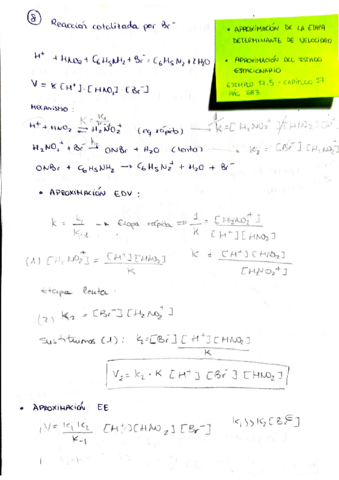 ⑧ Reacción catalizada por Br⁻
• APROXIMACIÓN DE LA ETAPA
DETERMINANTE DE VELOCIDAD
• APROXIMACIÓN DEL ESTADO
ESTACIONARIO
EJEMPLO 17.5 - CAPÍTULO 17
PÁG 683
H⁺ + HNO₂ + C₆H₅NH₂ + Br⁻ → C₆H₅N₂⁺ + 2H₂O
V = K [H⁺]·[HNO₂]·[Br⁻]
MECANISMO:
H⁺ + HNO₂ ⇌ H₂NO₂⁺ (eq rápido)
H₂NO₂⁺ + Br⁻ → ONBr + H₂O (lento)
ONBr + C₆H₅NH₂ → C₆H₅N₂⁺ + H₂O + Br⁻
• APROXIMACIÓN EDV:
K = k₁/k₋₁ → Etapa rápida
(1) [H₂NO₂⁺] = [H⁺][HNO₂]/K
Etapa lenta:
(2) k₂ = [Br⁻][H₂NO₂⁺]
Sustituimos (1): k₂ = [Br⁻] [H⁺][HNO₂]/K
V₂ = k₂·K [H⁺] [Br⁻] [HNO₂]
• APROXIMACIÓN EE
V = k₁k₂/k₋₁ [H⁺][HNO₂][Br⁻]